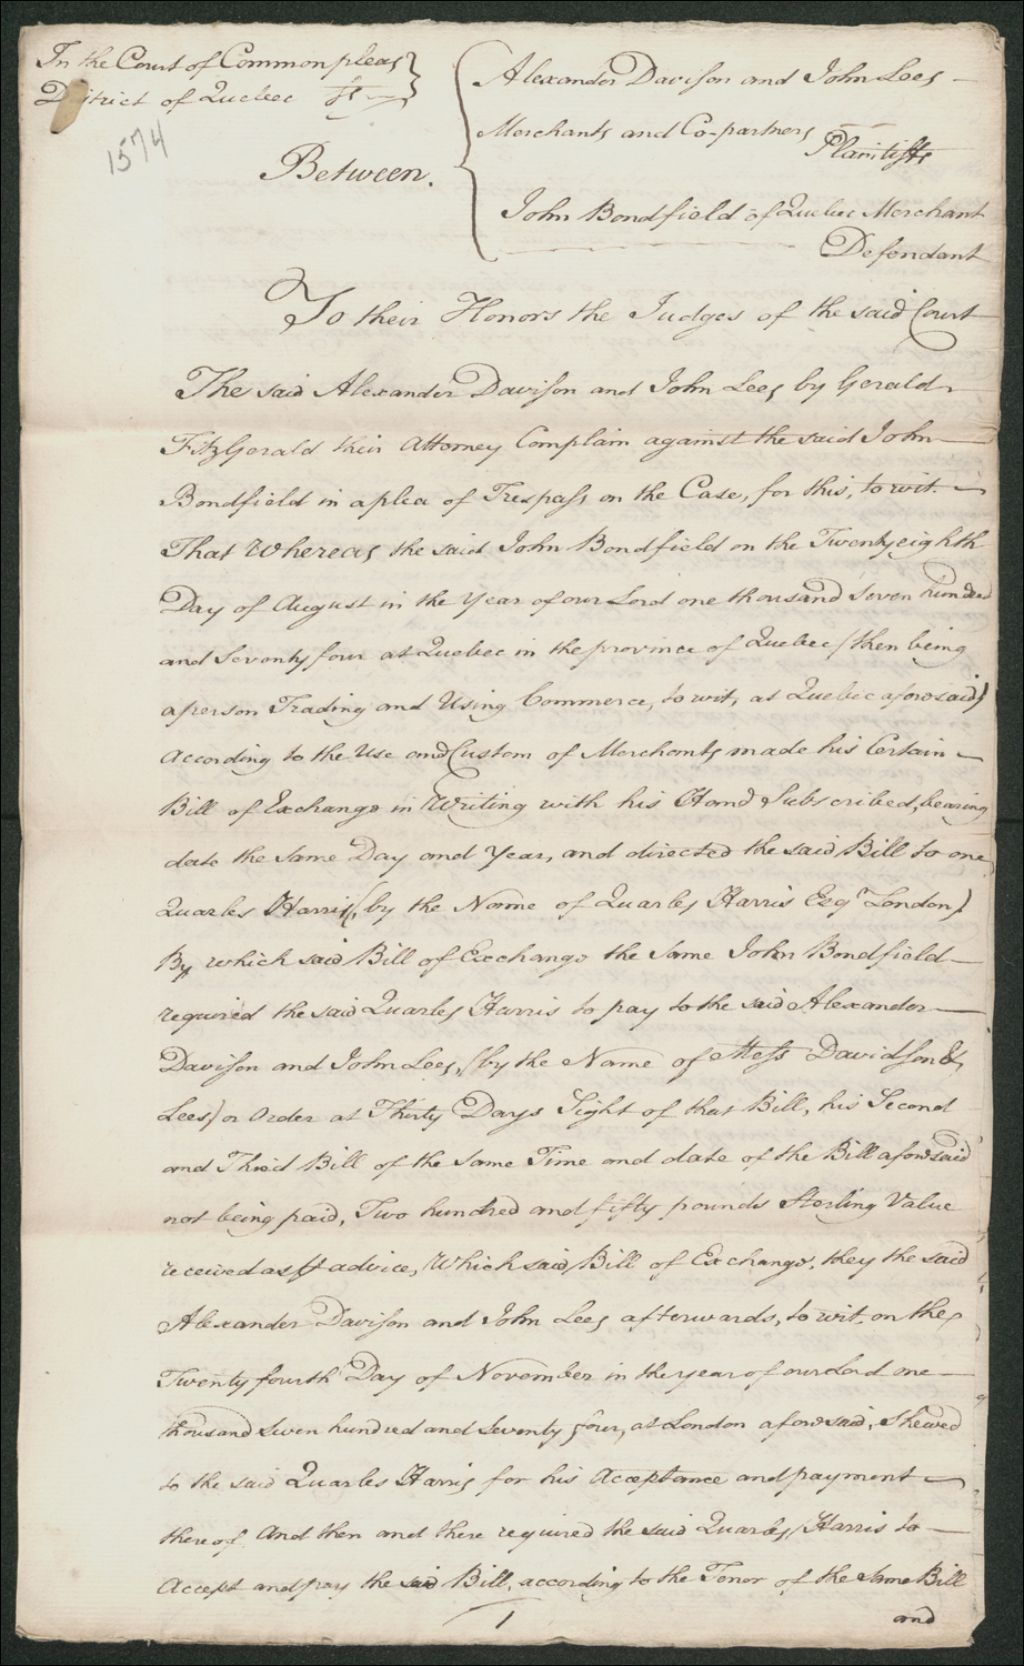 In the Court of Common pleas
District of Quebec ss
1574
Between.
Alexander Davison and John Lees
Merchants and Co-partners
Plaintiffs
John Bondfield of Quebec Merchant
Defendant
To their Honors the Judges of the said Court
The said Alexander Davison and John Lees by Gerald
FitzGerald their Attorney Complain against the said John
Bondfield in a plea of Trespass on the Case, for this, to wit.
That Whereas the said John Bondfield on the Twenty eighth
Day of August in the Year of our Lord one thousand Seven hundred
and Seventy four at Quebec in the province of Quebec (then being
a person Trading and Using Commerce, to wit, at Quebec aforesaid)
According to the Use and Custom of Merchants made his Certain
Bill of Exchange in Writing with his Hand Subscribed, bearing
date the Same Day and Year, and directed the said Bill to one
Quarles Harris, (by the Name of Quarles Harris Esqr London)
By which said Bill of Exchange the Same John Bondfield
required the said Quarles Harris to pay to the said Alexander
Davison and John Lees, (by the Name of Mess Davidson &
Lees) or Order at Thirty Days Sight of that Bill, his Second
and Third Bill of the Same Time and date of the Bill aforesaid
not being paid, Two hundred and fifty pounds Sterling Value
received as ⅌ advice, Which said Bill of Exchange, they the said
Alexander Davison and John Lees afterwards, to wit, on the
Twenty fourth Day of November in the year of our Lord one
thousand Seven hundred and Seventy four, at London aforesaid, Shewed
to the said Quarles Harris for his Acceptance and payment
thereof, And then and there required the said Quarles Harris to
Accept and pay the said Bill, according to the Tenor of the Same Bill
1
and